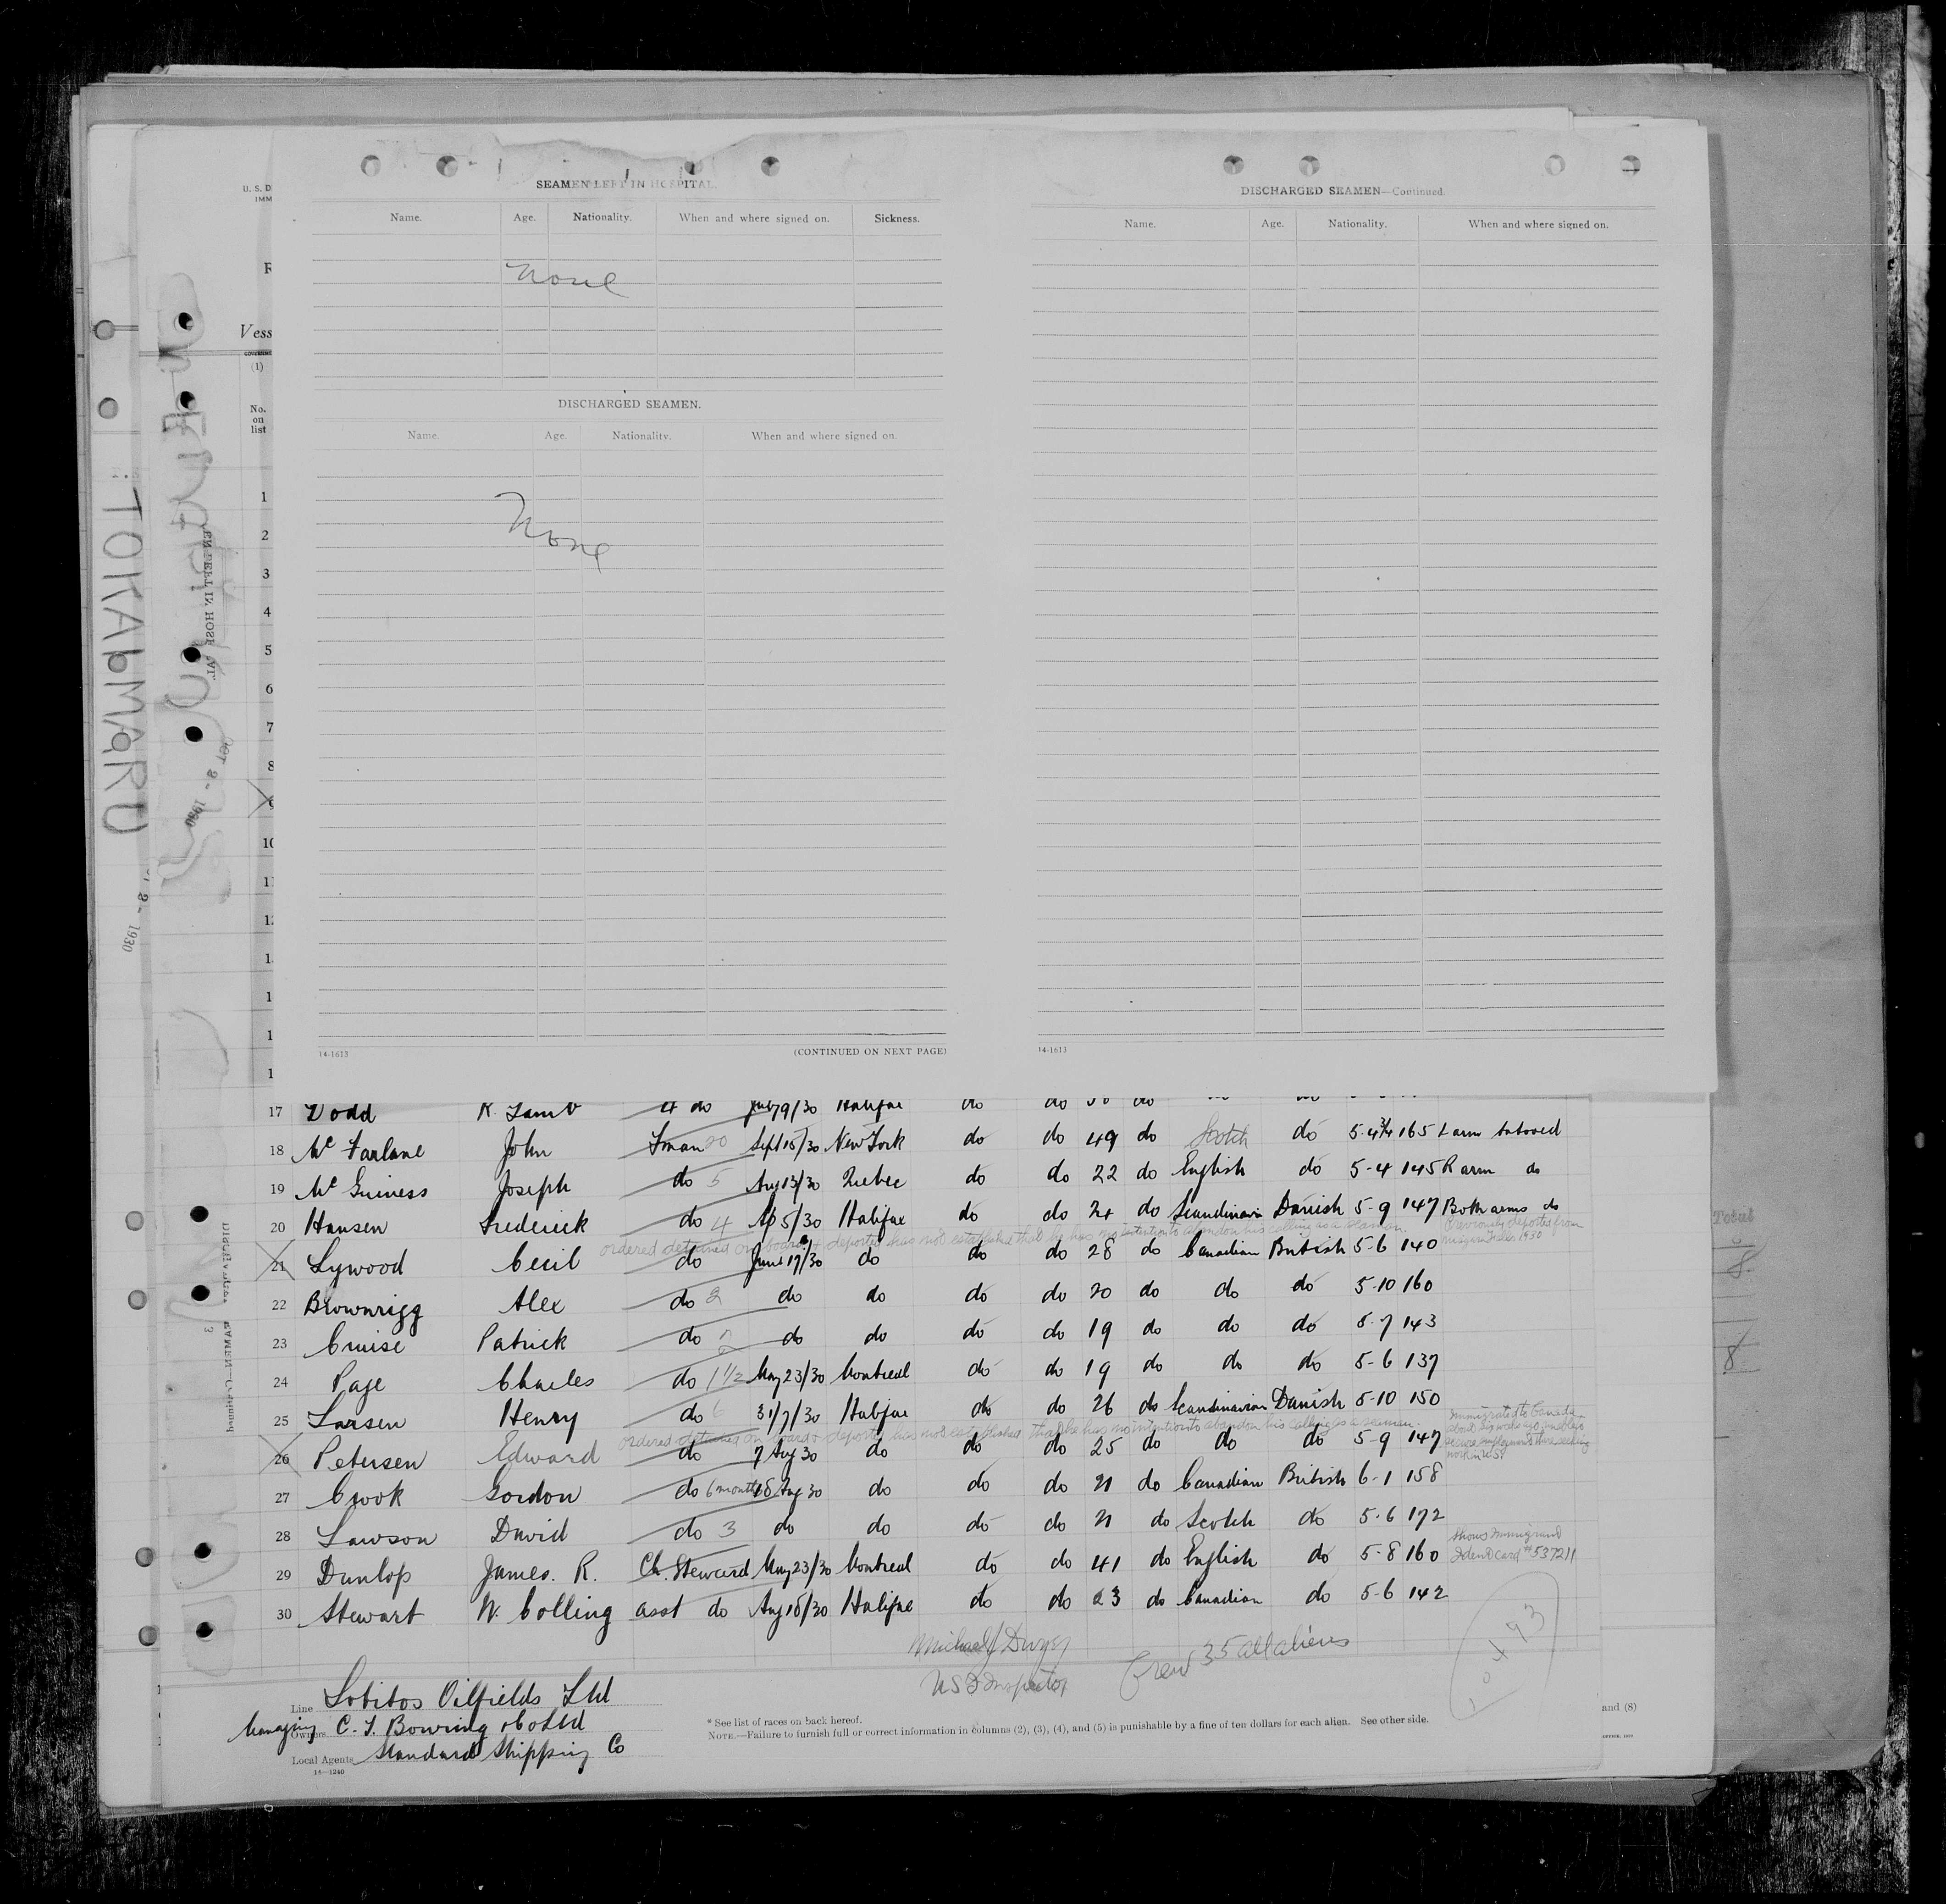 SEAMEN LEFT IN HOSPITAL.
Name. Age. Nationality. When and where signed on. Sickness.
None
DISCHARGED SEAMEN.
Name. Age. Nationality. When and where signed on.
None
14-1613 (CONTINUED ON NEXT PAGE)
DISCHARGED SEAMEN—Continued.
Name. Age. Nationality. When and where signed on.
14-1613
U. S. D
IMM
Vess
(1)
No.
on
list
1
2
3
4
5
6
7
8
10
TOKAI MARU
OCT 2 - 1930
2 - 1930
17 Dodd R. Lamb 4 do July 9/30 Halifax do do do
18 Mc Farlane John Fman 20 Sept 15/30 New York do do 49 do Scotch do 5-4¾ 165 L arm tatooed
19 Mc Guiness Joseph do 5 Aug 13/30 Quebec do do 22 do English do 5-4 145 R arm do
20 Hansen Frederick do 4 Ap 5/30 Halifax do do 24 do Scandinavian Danish 5-9 147 Both arms do
ordered detained on board & deported has not established that he has no intention to abandon his calling as a seaman.
Previously deported from
Niagara Falls 1930
21 Lywood Cecil do June 17/30 do do do 28 do Canadian British 5-6 140
22 Brownrigg Alex do 2 do do do do 20 do do do 5-10 160
23 Cruise Patrick do 2 do do do do 19 do do do 5-7 143
24 Page Charles do 1½ May 23/30 Montreal do do 19 do do do 5-6 137
25 Larsen Henry do 6 31/7/30 Halifax do do 26 do Scandinavian Danish 5-10 150
ordered detained on board & deported has not established that he has no intention to abandon his calling as a seaman.
Immigrated to Canada
26 Petersen Edward do 7 Aug 30 do do do 25 do do do 5-9 147
work in U.S.
27 Crook Gordon do 6 months 18 Aug 30 do do do 21 do Canadian British 6-1 158
28 Lawson David do 3 do do do do 21 do Scotch do 5-6 172
shows Immigrant
29 Dunlop James. R. Ch. Steward May 23/30 Montreal do do 41 do English do 5-8 160 Ident card # 537211
30 Stewart W. Colling asst do Aug 18/30 Halifax do do 23 do Canadian do 5-6 142
Michael J Dwyer
US Inspector
Crew 35 all aliens
Line Lobitos Oilfields Ltd
Managing Owners C. T. Bowring & Co Ltd
Local Agents Standard Shipping Co
14-1240
* See list of races on back hereof.
NOTE.—Failure to furnish full or correct information in columns (2), (3), (4), and (5) is punishable by a fine of ten dollars for each alien. See other side.
and (8)
Total
8
8